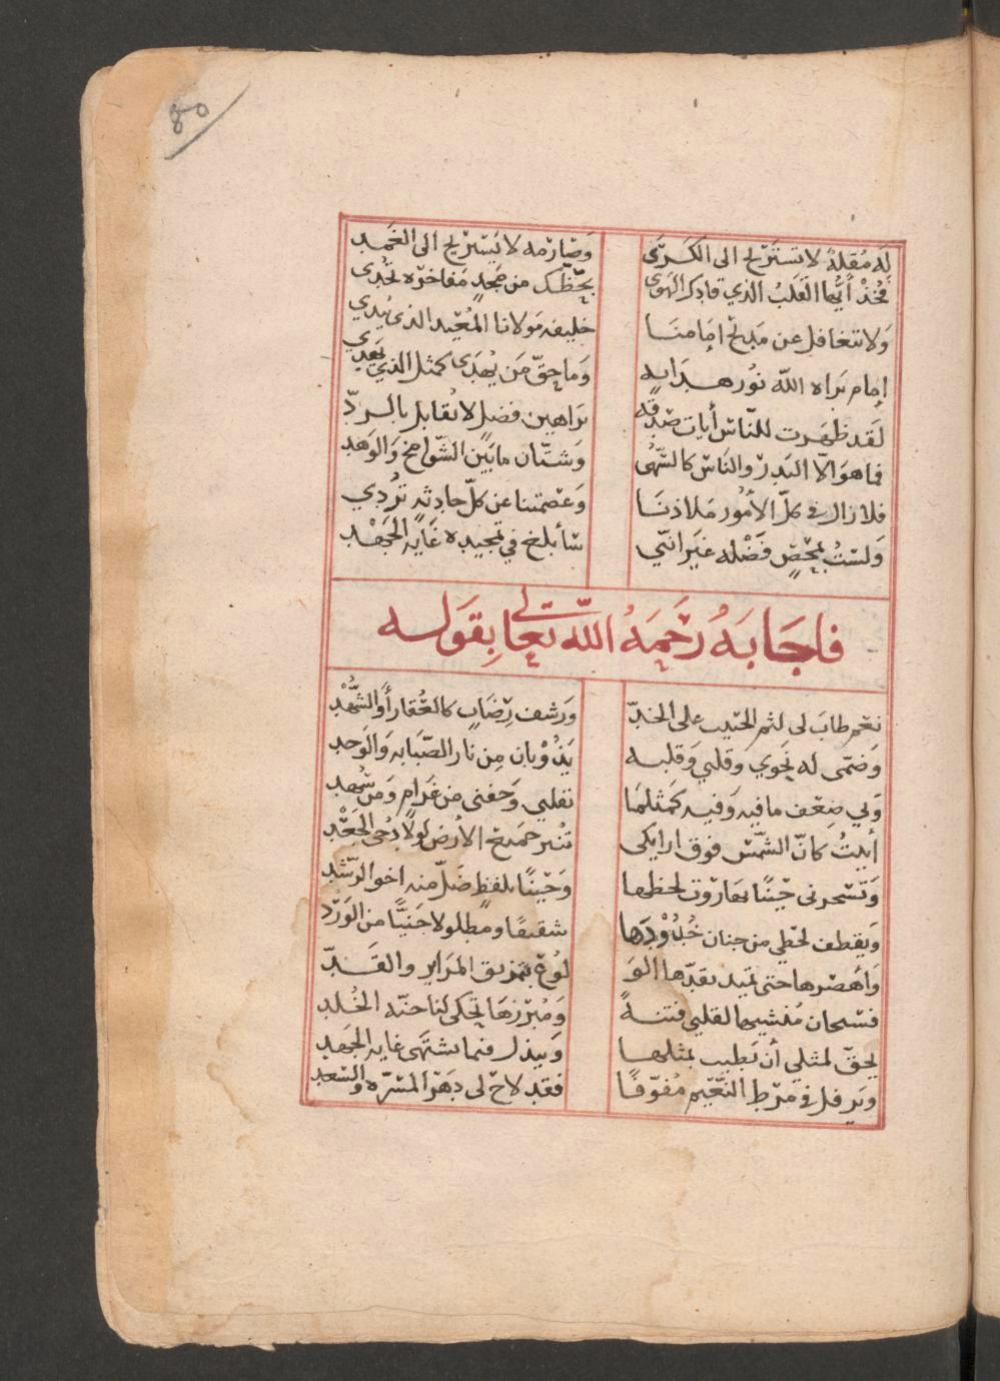 80
له مقلة لا تستريح الى الكرى وصارمه لا يستريح الى الغمد
فخذ أيها القلب الذي قادك الهوى بحظك من مجد مفاخره تجدى
ولا تتغافل عن مديح امامنا خليفه مولانا المعيد الذى يبدي
إمام براه الله نور هدايه وما حق من يهدى كمثل الذي يعدي
لقد ظهرت للناس أيات صدقه براهين فضل لا تقابل بالرد
فما هو الا البدر والناس كالسهى وشتان ما بين الشوامخ والوهد
فلا زال في كل الأمور ملاذنا وعصمتنا عن كل حادثه تردي
ولست بمحص فضله غير انني سأبلغ في تمجيده غايه الجهد
فاجابه رحمه الله تعالى بقوله
نعم طاب لى لثم الحبيب على الخد ورشف رضاب كالعقار أو الشهد
وضمى له نحوي وقلبي وقلبه يذوبان من نار الصبابه والوجد
ولي ضعف ما فيه وفيه كمثلما بقلبي وجفنى من غرام ومن سهد
أبيت كان الشمس فوق ارايكى تنير جميع الأرض لولا دجى الجعد
وتسحرنى حينا بهاروت لحظها وحينا بلفظ ضل منه اخو الرشد
ويقطف لحظي من جنان خدودها شقيقا ومطلولا جنيا من الورد
وأهصرها حتى تميد بقدها الو لوع بتمزيق المراير والقد
فسبحان منشيها لقلبي فتنة ومبرزها تحكى لنا جنه الخلد
يحق لمثلي أن يطيب بمثلها ويبذل فيما يشتهى غايه الجهد
ويرفل في مرط النعيم مفوفا فقد لاح لى دهر المسره والسعد